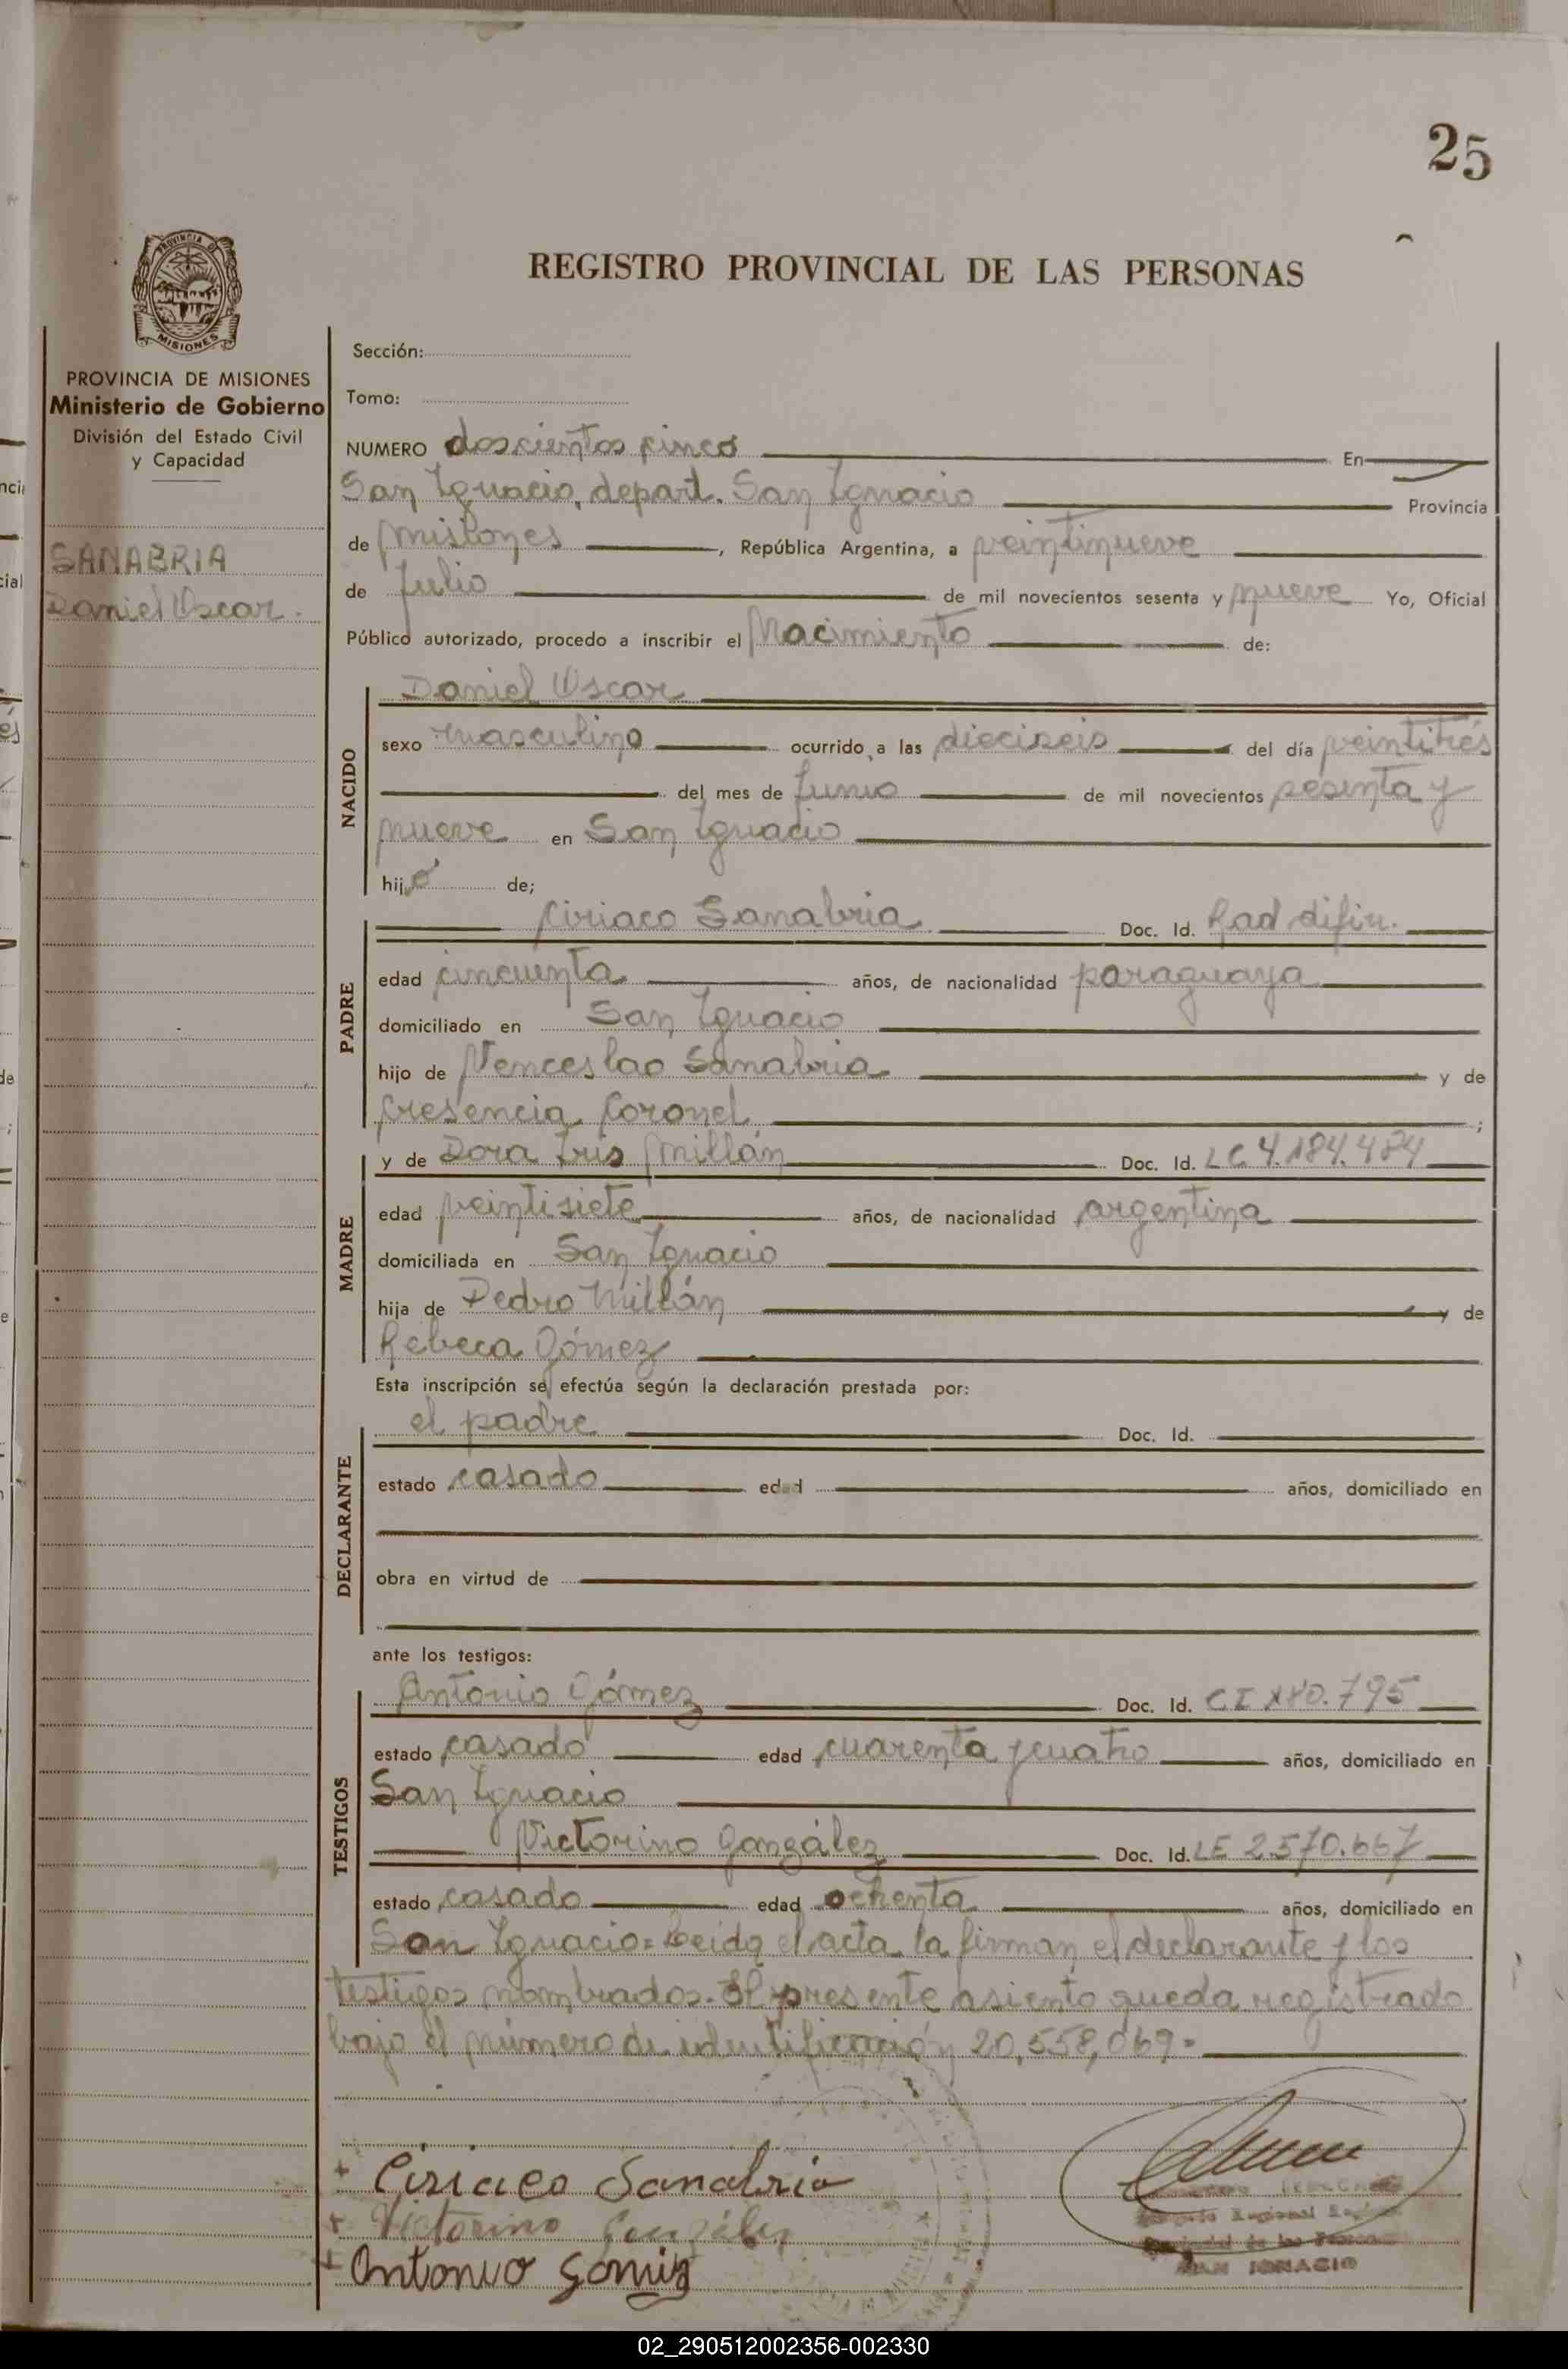 25
REGISTRO PROVINCIAL DE LAS PERSONAS
PROVINCIA DE MISIONES
PROVINCIA DE MISIONES
Ministerio de Gobierno
División del Estado Civil
y Capacidad
SANABRIA
Daniel Oscar.
Sección:
Tomo:
NUMERO doscientos cinco En
San Ignacio, depart. San Ignacio Provincia
de Misiones, República Argentina, a veintinueve
de Julio de mil novecientos sesenta y nueve Yo, Oficial
Público autorizado, procedo a inscribir el Nacimiento de:
NACIDO
Daniel Oscar
sexo masculino ocurrido a las dieciseis del día veintitrés
del mes de Junio de mil novecientos sesenta y
nueve en San Ignacio
hijo de;
PADRE
Ciriaco Sanabria Doc. Id. Rad difin.
edad cincuenta años, de nacionalidad paraguaya
domiciliado en San Ignacio
hijo de Venceslao Sanabria y de
Cresencia Coronel ;
MADRE
y de Dora Iris Millán Doc. Id. LC 4.184.484
edad veintisiete años, de nacionalidad argentina
domiciliada en San Ignacio
hija de Pedro Millán y de
Rebeca Gómez
Esta inscripción se efectúa según la declaración prestada por:
DECLARANTE
el padre Doc. Id.
estado casado edad años, domiciliado en
obra en virtud de
ante los testigos:
TESTIGOS
Antonio Gómez Doc. Id. CI 795
estado casado edad cuarenta y cuatro años, domiciliado en
San Ignacio
Victorino González Doc. Id. LE 2.570.667
estado casado edad ochenta años, domiciliado en
San Ignacio= Leida el acta la firman el declarante y los
testigos nombrados. El presente asiento queda registrado
bajo el número de identificación 20,558,069=
+ Ciriaco Sanabria
+ Victorino González
+ Antonio Gomiz
SAN IGNACIO
02_290512002356-002330